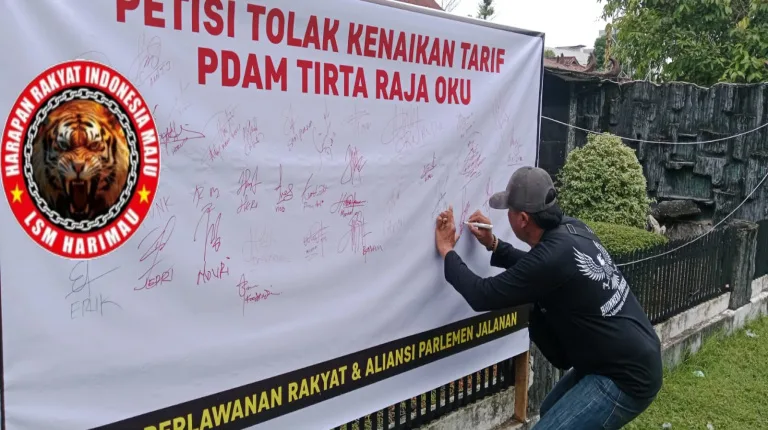 PETISI TOLAK KENAIKAN TARIF
PDAM TIRTA RAJA OKU
HARAPAN RAKYAT INDONESIA MAJU
LSM HARIMAU
JEPRI
NOURI
ERIK
PERLAWANAN RAKYAT & ALIANSI PARLEMEN JALANAN